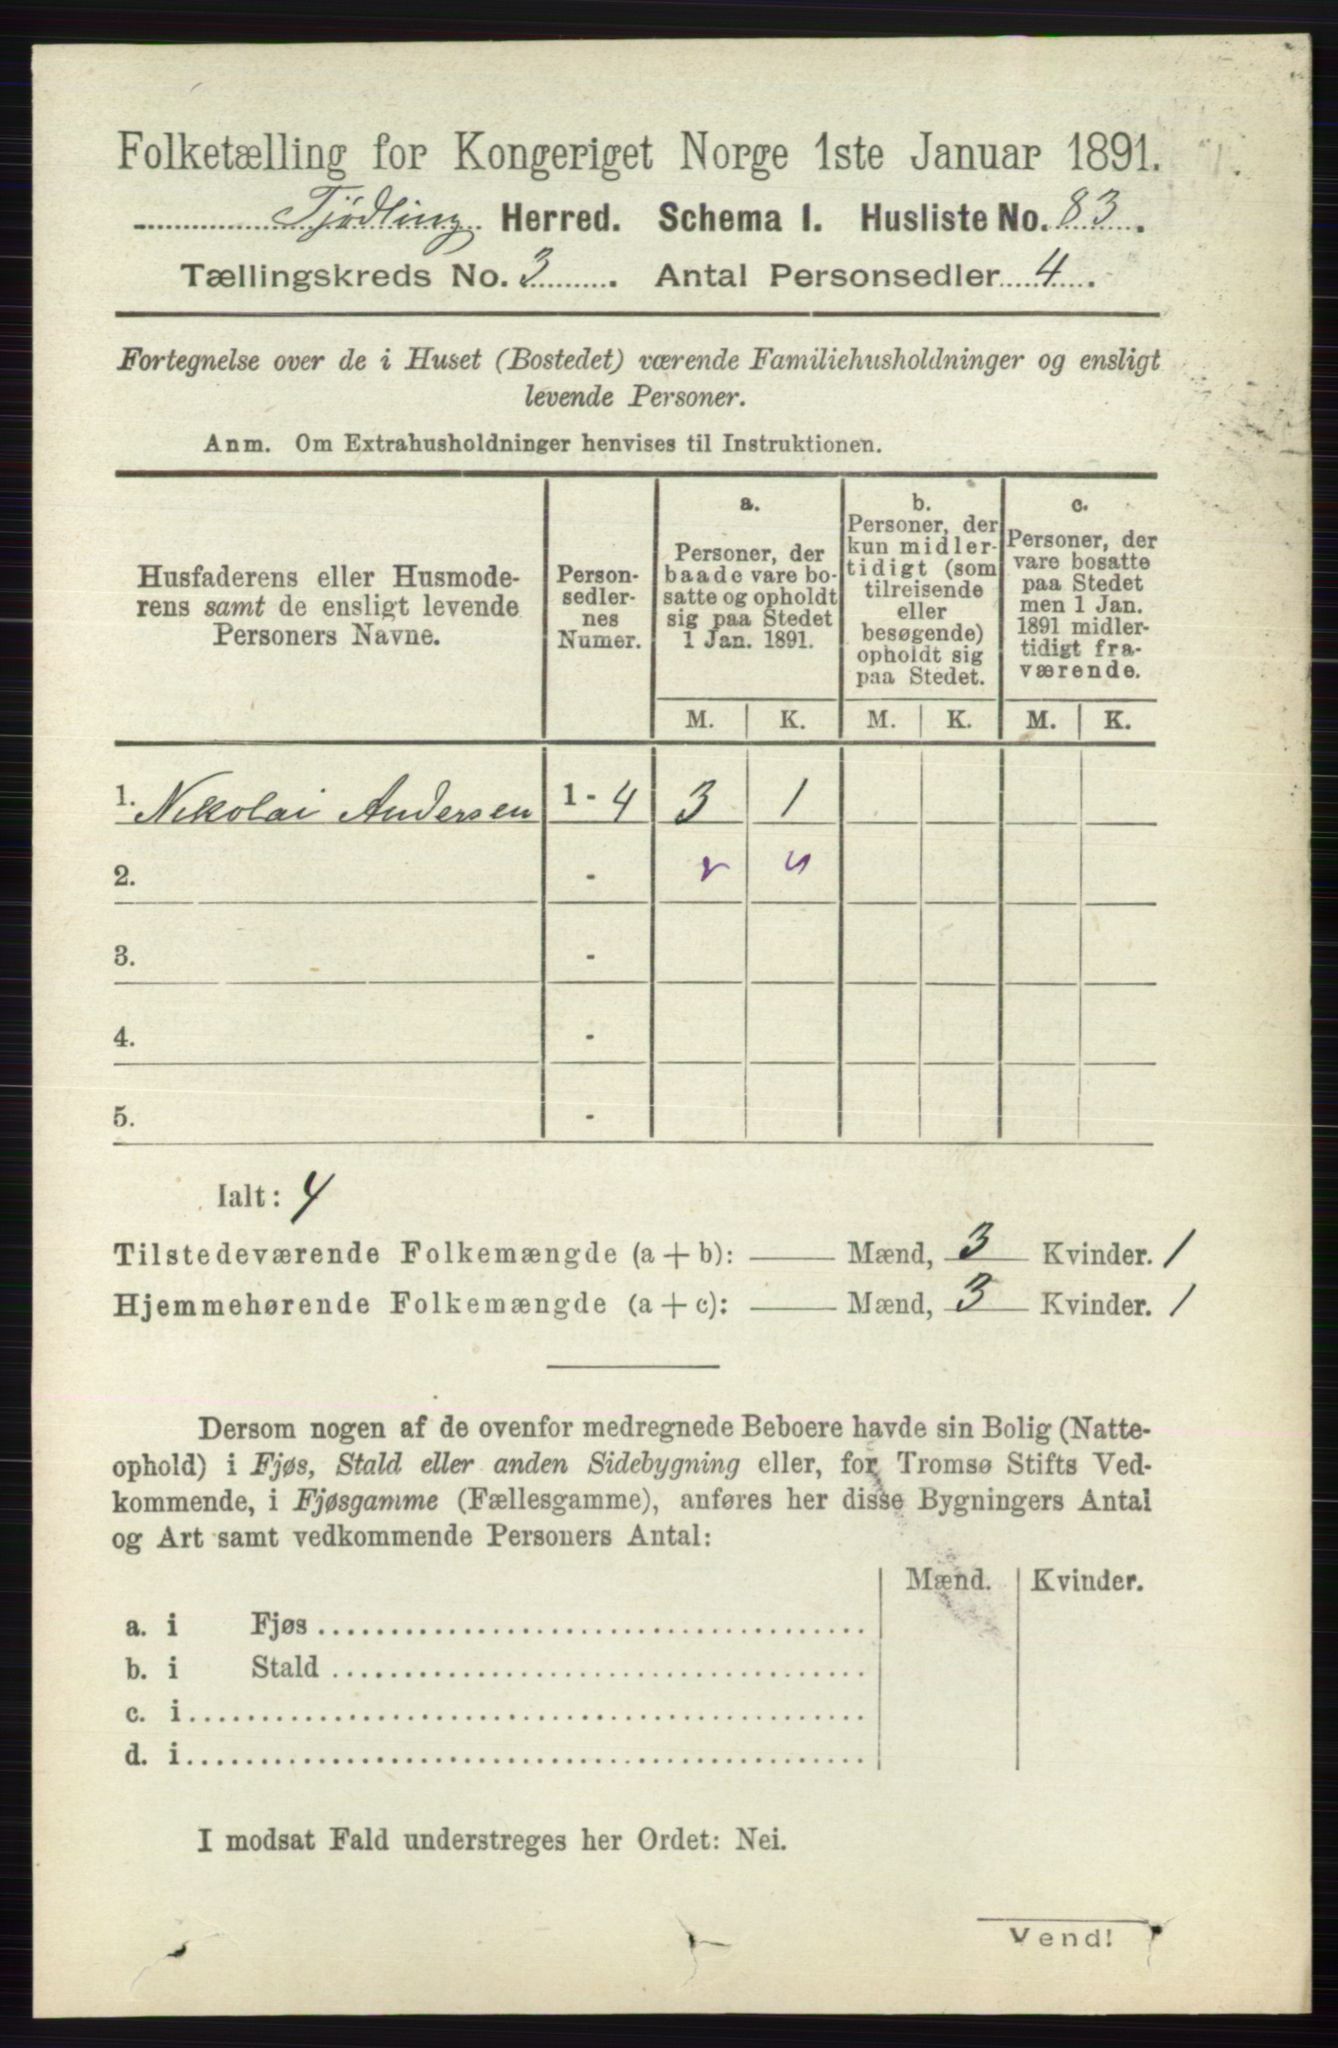 Folketælling for Kongeriget Norge 1ste Januar 1891.
Tjødling Herred. Schema I. Husliste No. 83.
Tællingskreds No. 3. Antal Personsedler 4.
Fortegnelse over de i Huset (Bostedet) værende Familiehusholdninger og ensligt
levende Personer.
Anm. Om Extrahusholdninger henvises til Instruktionen.
Husfaderens eller Husmode-
rens samt de ensligt levende
Personers Navne.
Person-
sedler-
nes
Numer.
a.
Personer, der
baade vare bo-
satte og opholdt
sig paa Stedet
1 Jan. 1891.
b.
Personer, der
kun midler-
tidigt (som
tilreisende
eller
besøgende)
opholdt sig
paa Stedet.
c.
Personer, der
vare bosatte
paa Stedet
men 1 Jan.
1891 midler-
tidigt fra-
værende.
M. K. M. K. M. K.
1. Nikolai Andersen 1 - 4 3 1
2. -
3. -
4. -
5. -
Ialt: 4
Tilstedeværende Folkemængde (a + b): Mænd, 3 Kvinder. 1
Hjemmehørende Folkemængde (a + c): Mænd, 3 Kvinder. 1
Dersom nogen af de ovenfor medregnede Beboere havde sin Bolig (Natte-
ophold) i Fjøs, Stald eller anden Sidebygning eller, for Tromsø Stifts Ved-
kommende, i Fjøsgamme (Fællesgamme), anføres her disse Bygningers Antal
og Art samt vedkommende Personers Antal:
Mænd. Kvinder.
a. i Fjøs
b. i Stald
c. i
d. i
I modsat Fald understreges her Ordet: Nei.
Vend!